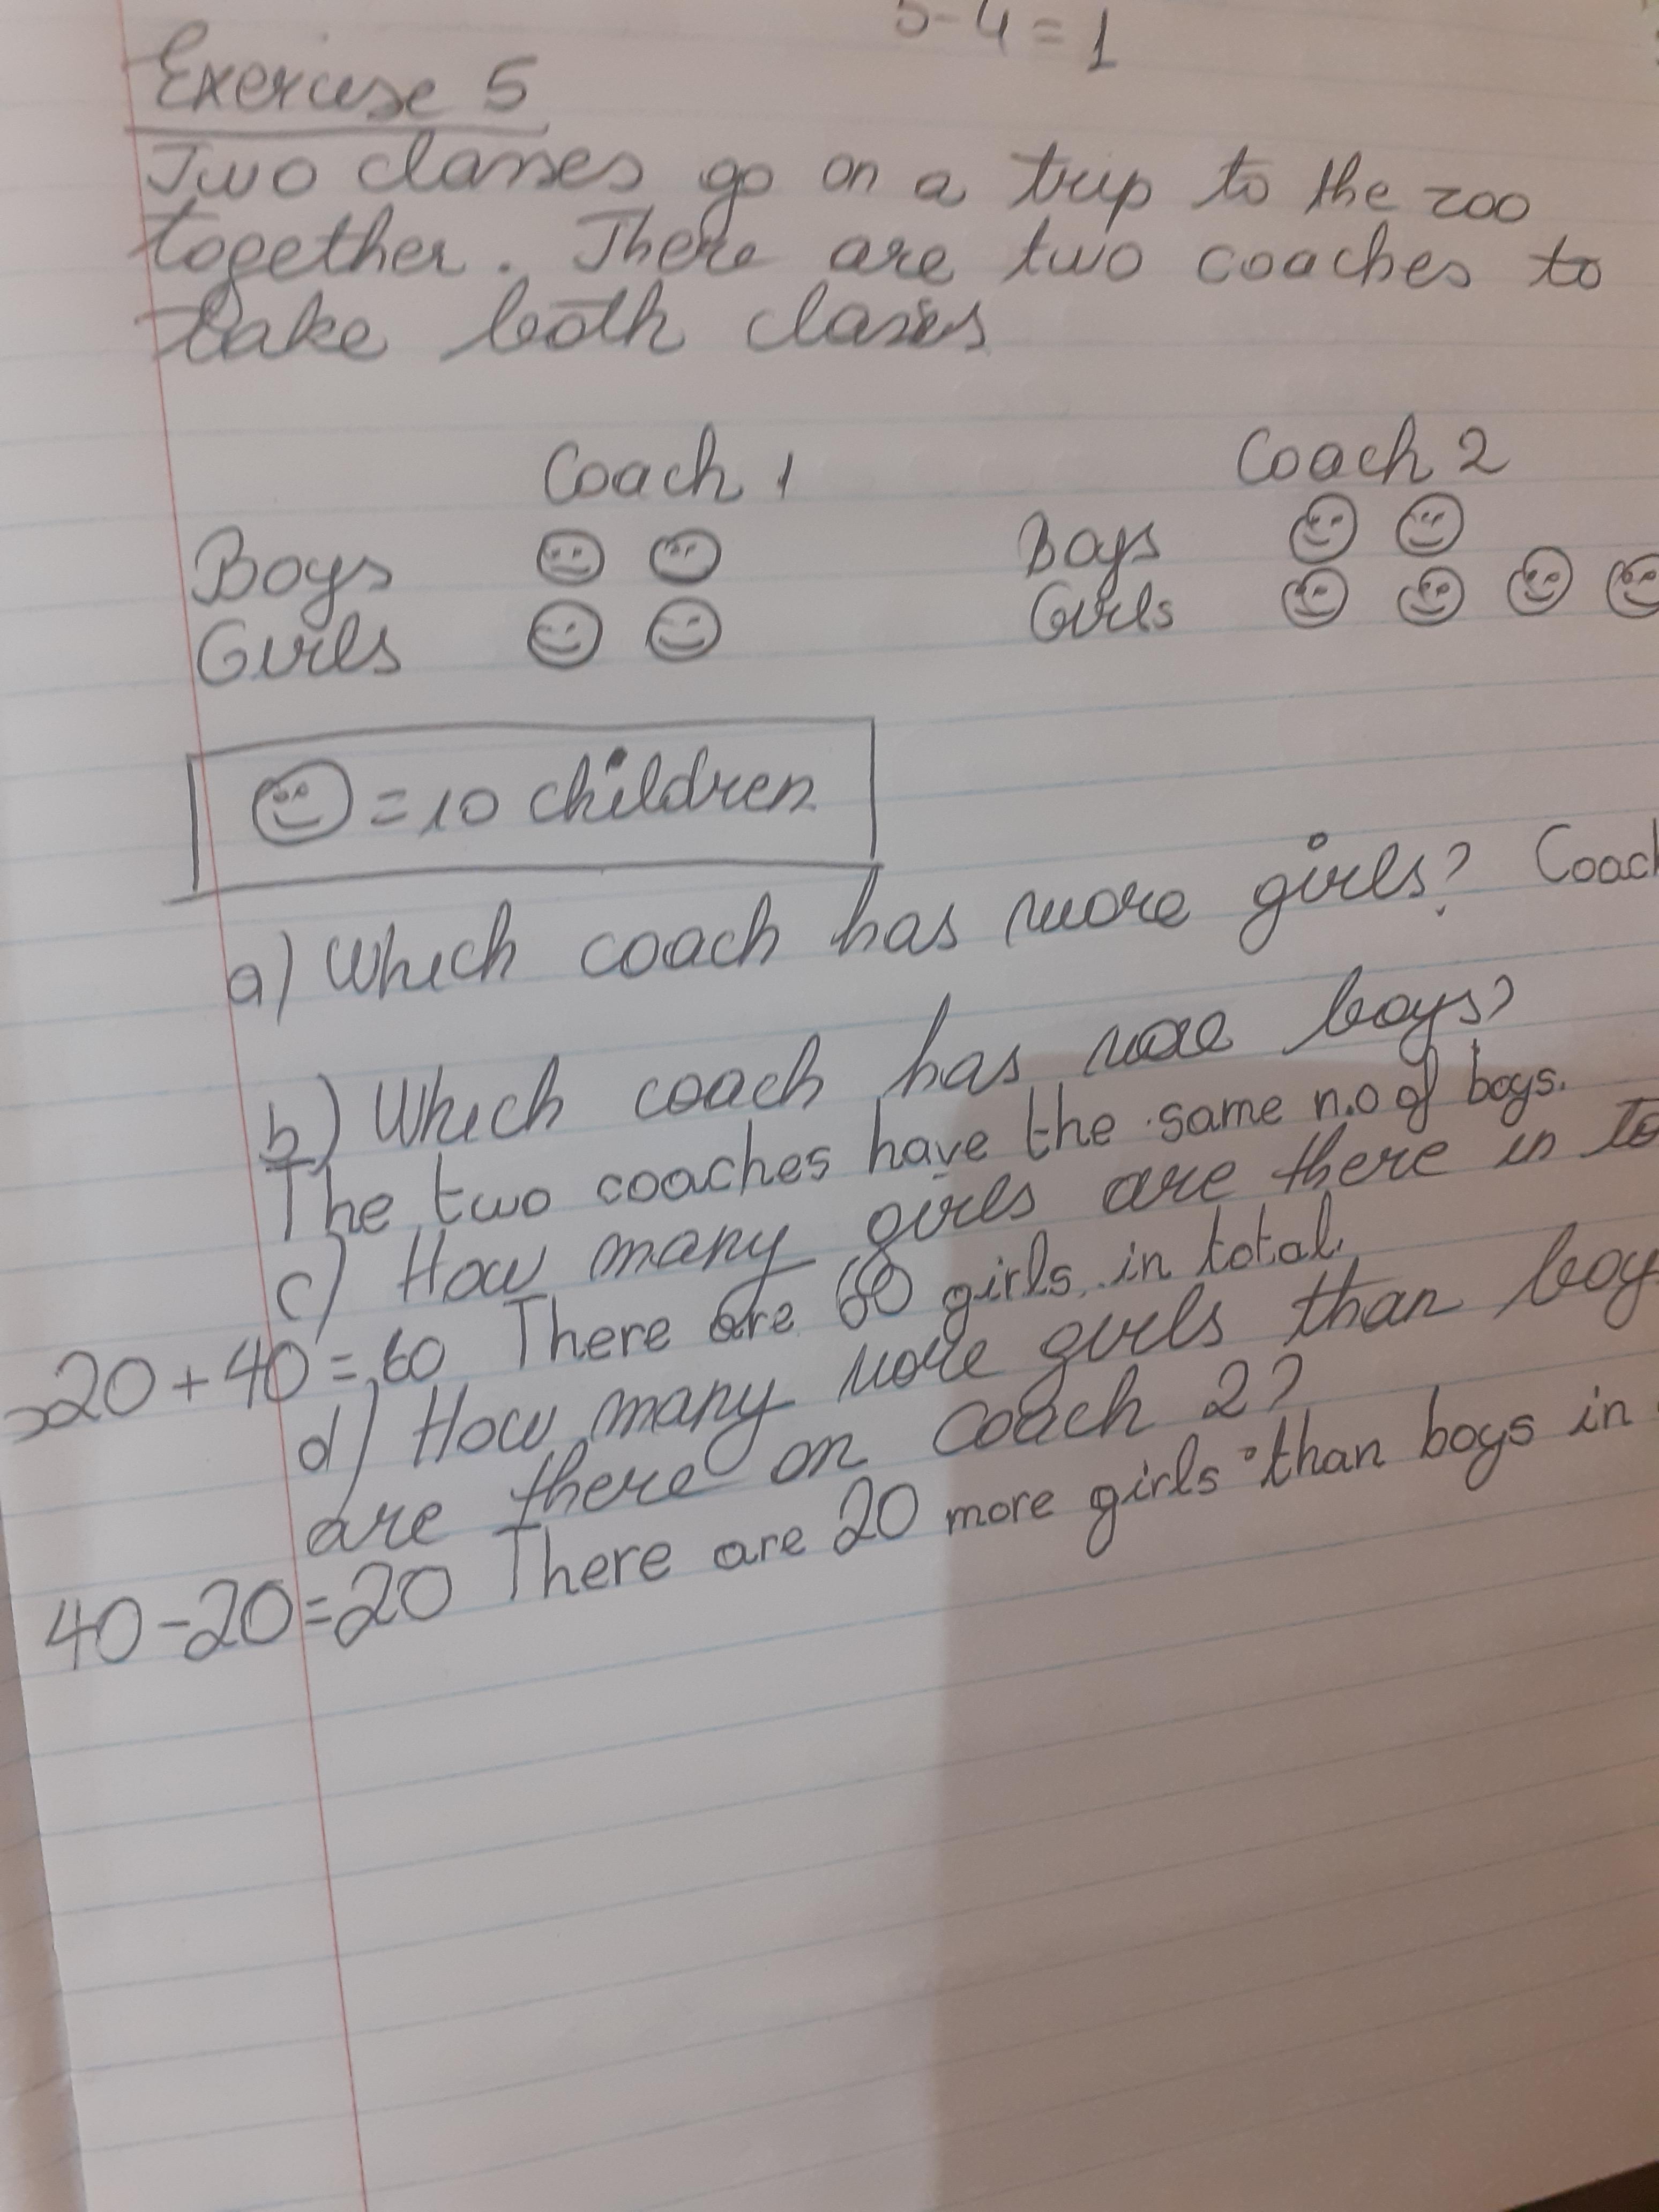 5-4=1
Exercise 5
Two classes go on a trip to the zoo
together. There are two coaches to
take both classes
Coach 1 Coach 2
Boys Boys
Girls Girls
=10 children
a) Which coach has more girls? Coach
b) Which coach has more boys?
The two coaches have the same n.o of boys.
c) How many girls are there in to
20+40=60 There are 60 girls in total.
d) How many more girls than boy
are there on coach 2?
40-20=20 There are 20 more girls than boys in